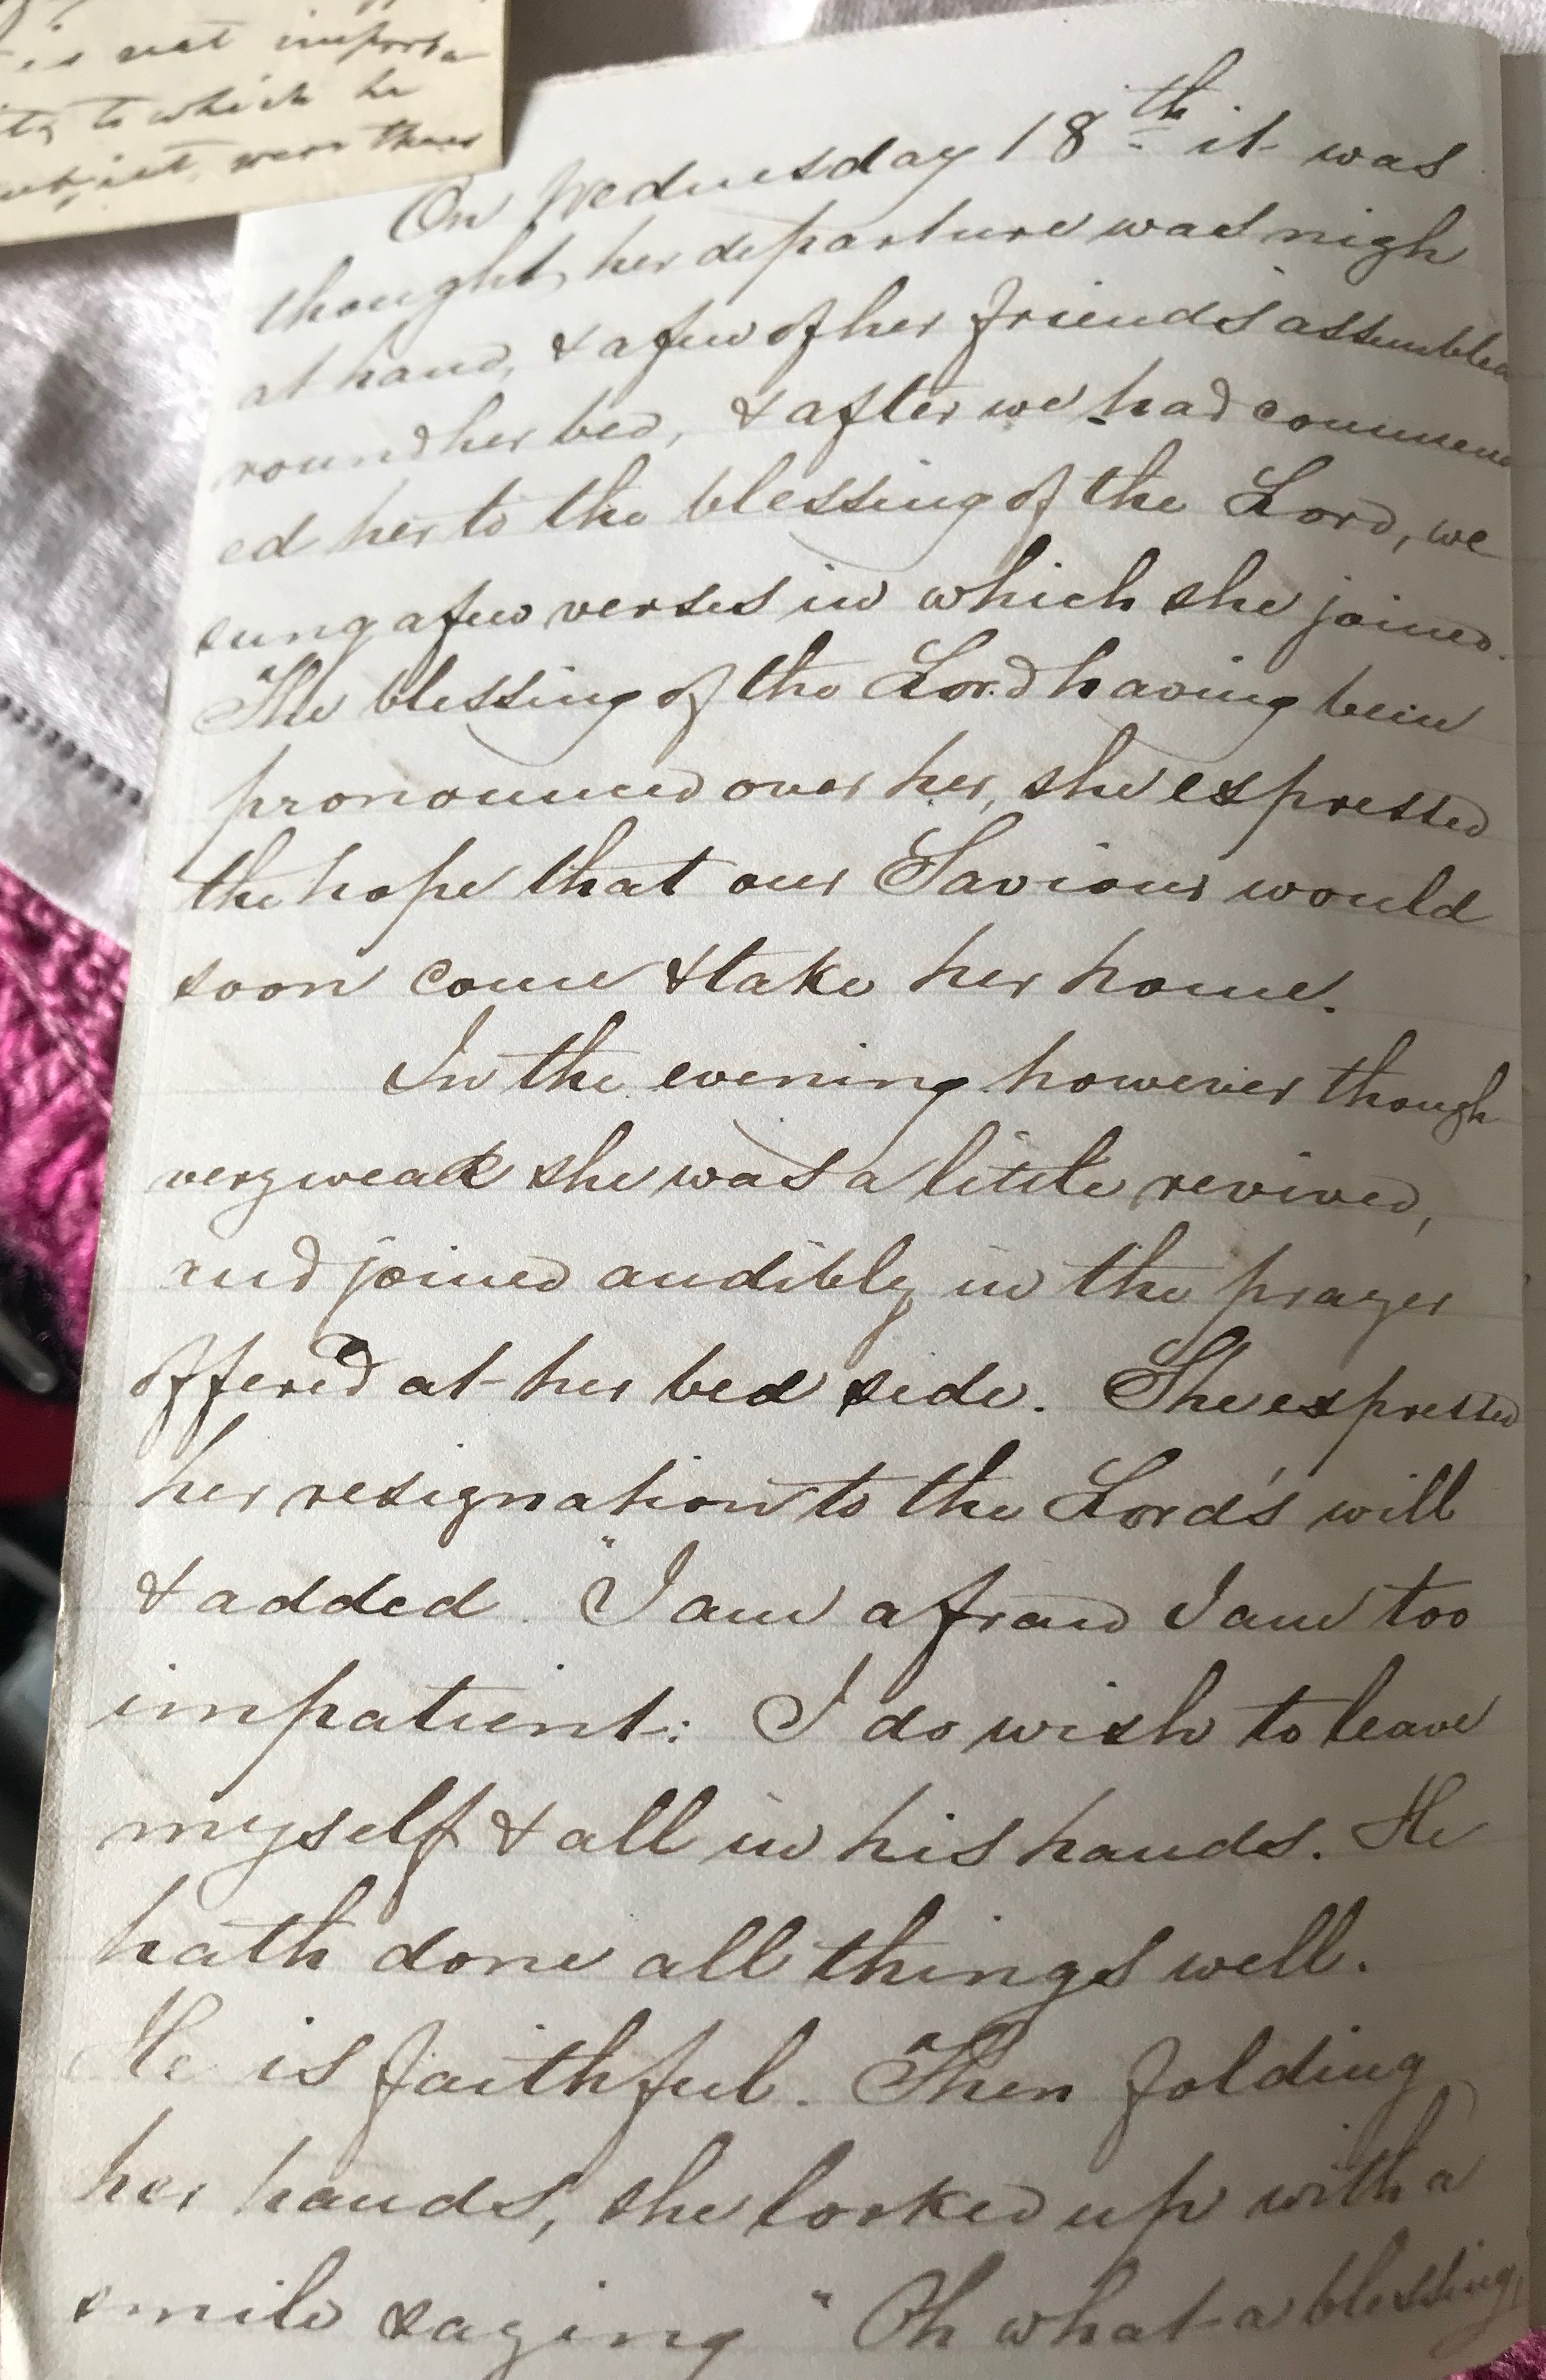 is not importa
to which he
were
On Wednesday 18th it was
thought her departure was nigh
at hand, & a few of her friends assembled
round her bed, & after we had commend
ed her to the blessing of the Lord, we
sung a few verses in which she joined.
The blessing of the Lord having been
pronounced over her, she expressed
the hope that our Saviour would
soon come & take her home.
In the evening however though
very weak she was a little revived,
and joined audibly in the prayer
offered at her bed side. She expressed
her resignation to the Lord's will
& added. "I am afraid I am too
impatient: I do wish to leave
myself & all in his hands. He
hath done all things well.
He is faithful. Then folding
her hands, she looked up with a
smile saying "Oh what a blessing,